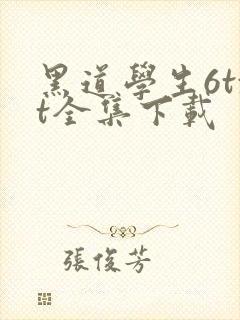 黑道學生6tx
t全集下載
張俊芳